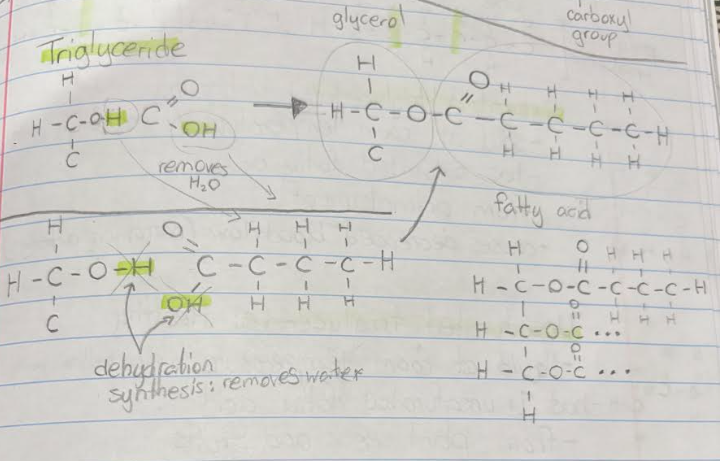 glycerol
carboxyl
group
Triglyceride
H
H-C-OH C O
OH
C
removes
H₂O
H
H-C-O-C-C-C-C-C-H
O H H H H
C H H H H
fatty acid
H O H H H
H-C-O-H C-C-C-C-H
C OH H H H
dehydration
synthesis: removes water
H O H H H
H-C-O-C-C-C-C-H
H H H
O
H-C-O-C...
O
H-C-O-C...
H